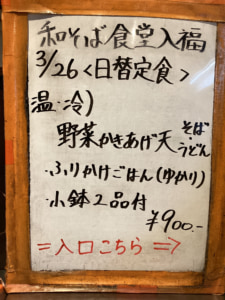 和そば食堂入福
3/26<日替定食>
温・冷)
野菜かきあげ天 そば・うどん
・ふりかけごはん(ゆかり)
・小鉢2品付
¥900.-
⇒入口こちら⇒